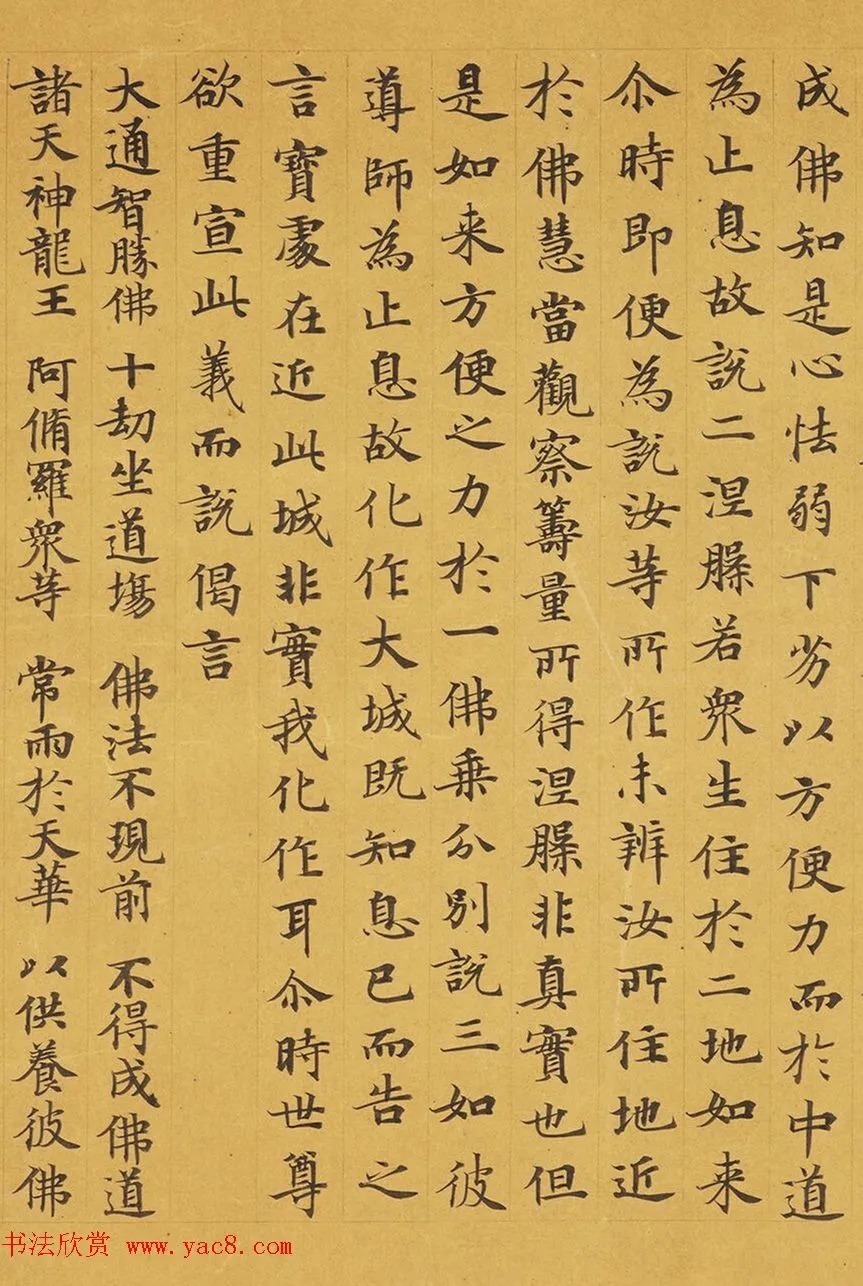 成佛知是心怯弱下劣以方便力而於中道
為止息故說二涅槃若眾生住於二地如来
尒時即便為說汝等所作未辨汝所住地近
於佛慧當觀察籌量所得涅槃非真實也但
是如来方便之力於一佛乗分別說三如彼
導師為止息故化作大城既知息已而告之
言寶處在近此城非實我化作耳尒時世尊
欲重宣此義而說偈言
大通智勝佛 十劫坐道場 佛法不現前 不得成佛道
諸天神龍王 阿脩羅眾等 常雨於天華 以供養彼佛
书法欣赏 www.yac8.com